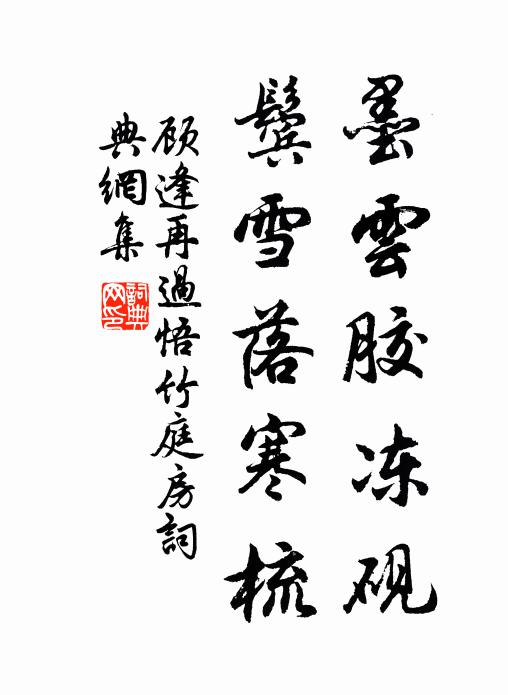 墨雲胶冻砚
鬓雪落寒梳
顾逢再過悟竹庭房詞
典網集
詞典
网印